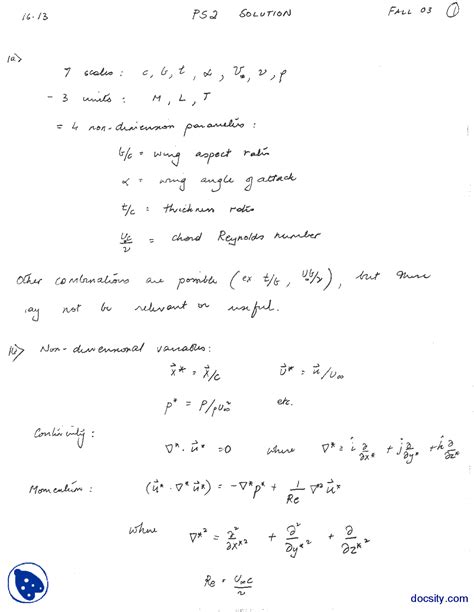 16.13 PS2 SOLUTION FALL 03 1
1a)
7 scales : c, b, t, α, V∞, ν, ρ
- 3 units : M, L, T
= 4 non-dimension parameters :
b/c = wing aspect ratio
α = wing angle of attack
t/c = thickness ratio
Uc/ν = chord Reynolds number
Other combinations are possible (ex t/b, Ub/ν), but these
may not be relevant or useful.
1b) Non-dimensional variables:
x⃗* = x⃗/c u⃗* = u⃗/U∞
p* = P/ρU∞² etc.
Continuity :
∇*·u⃗* = 0 where ∇* = i ∂/∂x* + j ∂/∂y* + k ∂/∂z*
Momentum : (u⃗*·∇*u⃗*) = -∇*p* + 1/Re ∇*²u⃗*
where ∇*² = ∂²/∂x*² + ∂²/∂y*² + ∂/∂z*²
Re = U∞c/ν
docsity.com